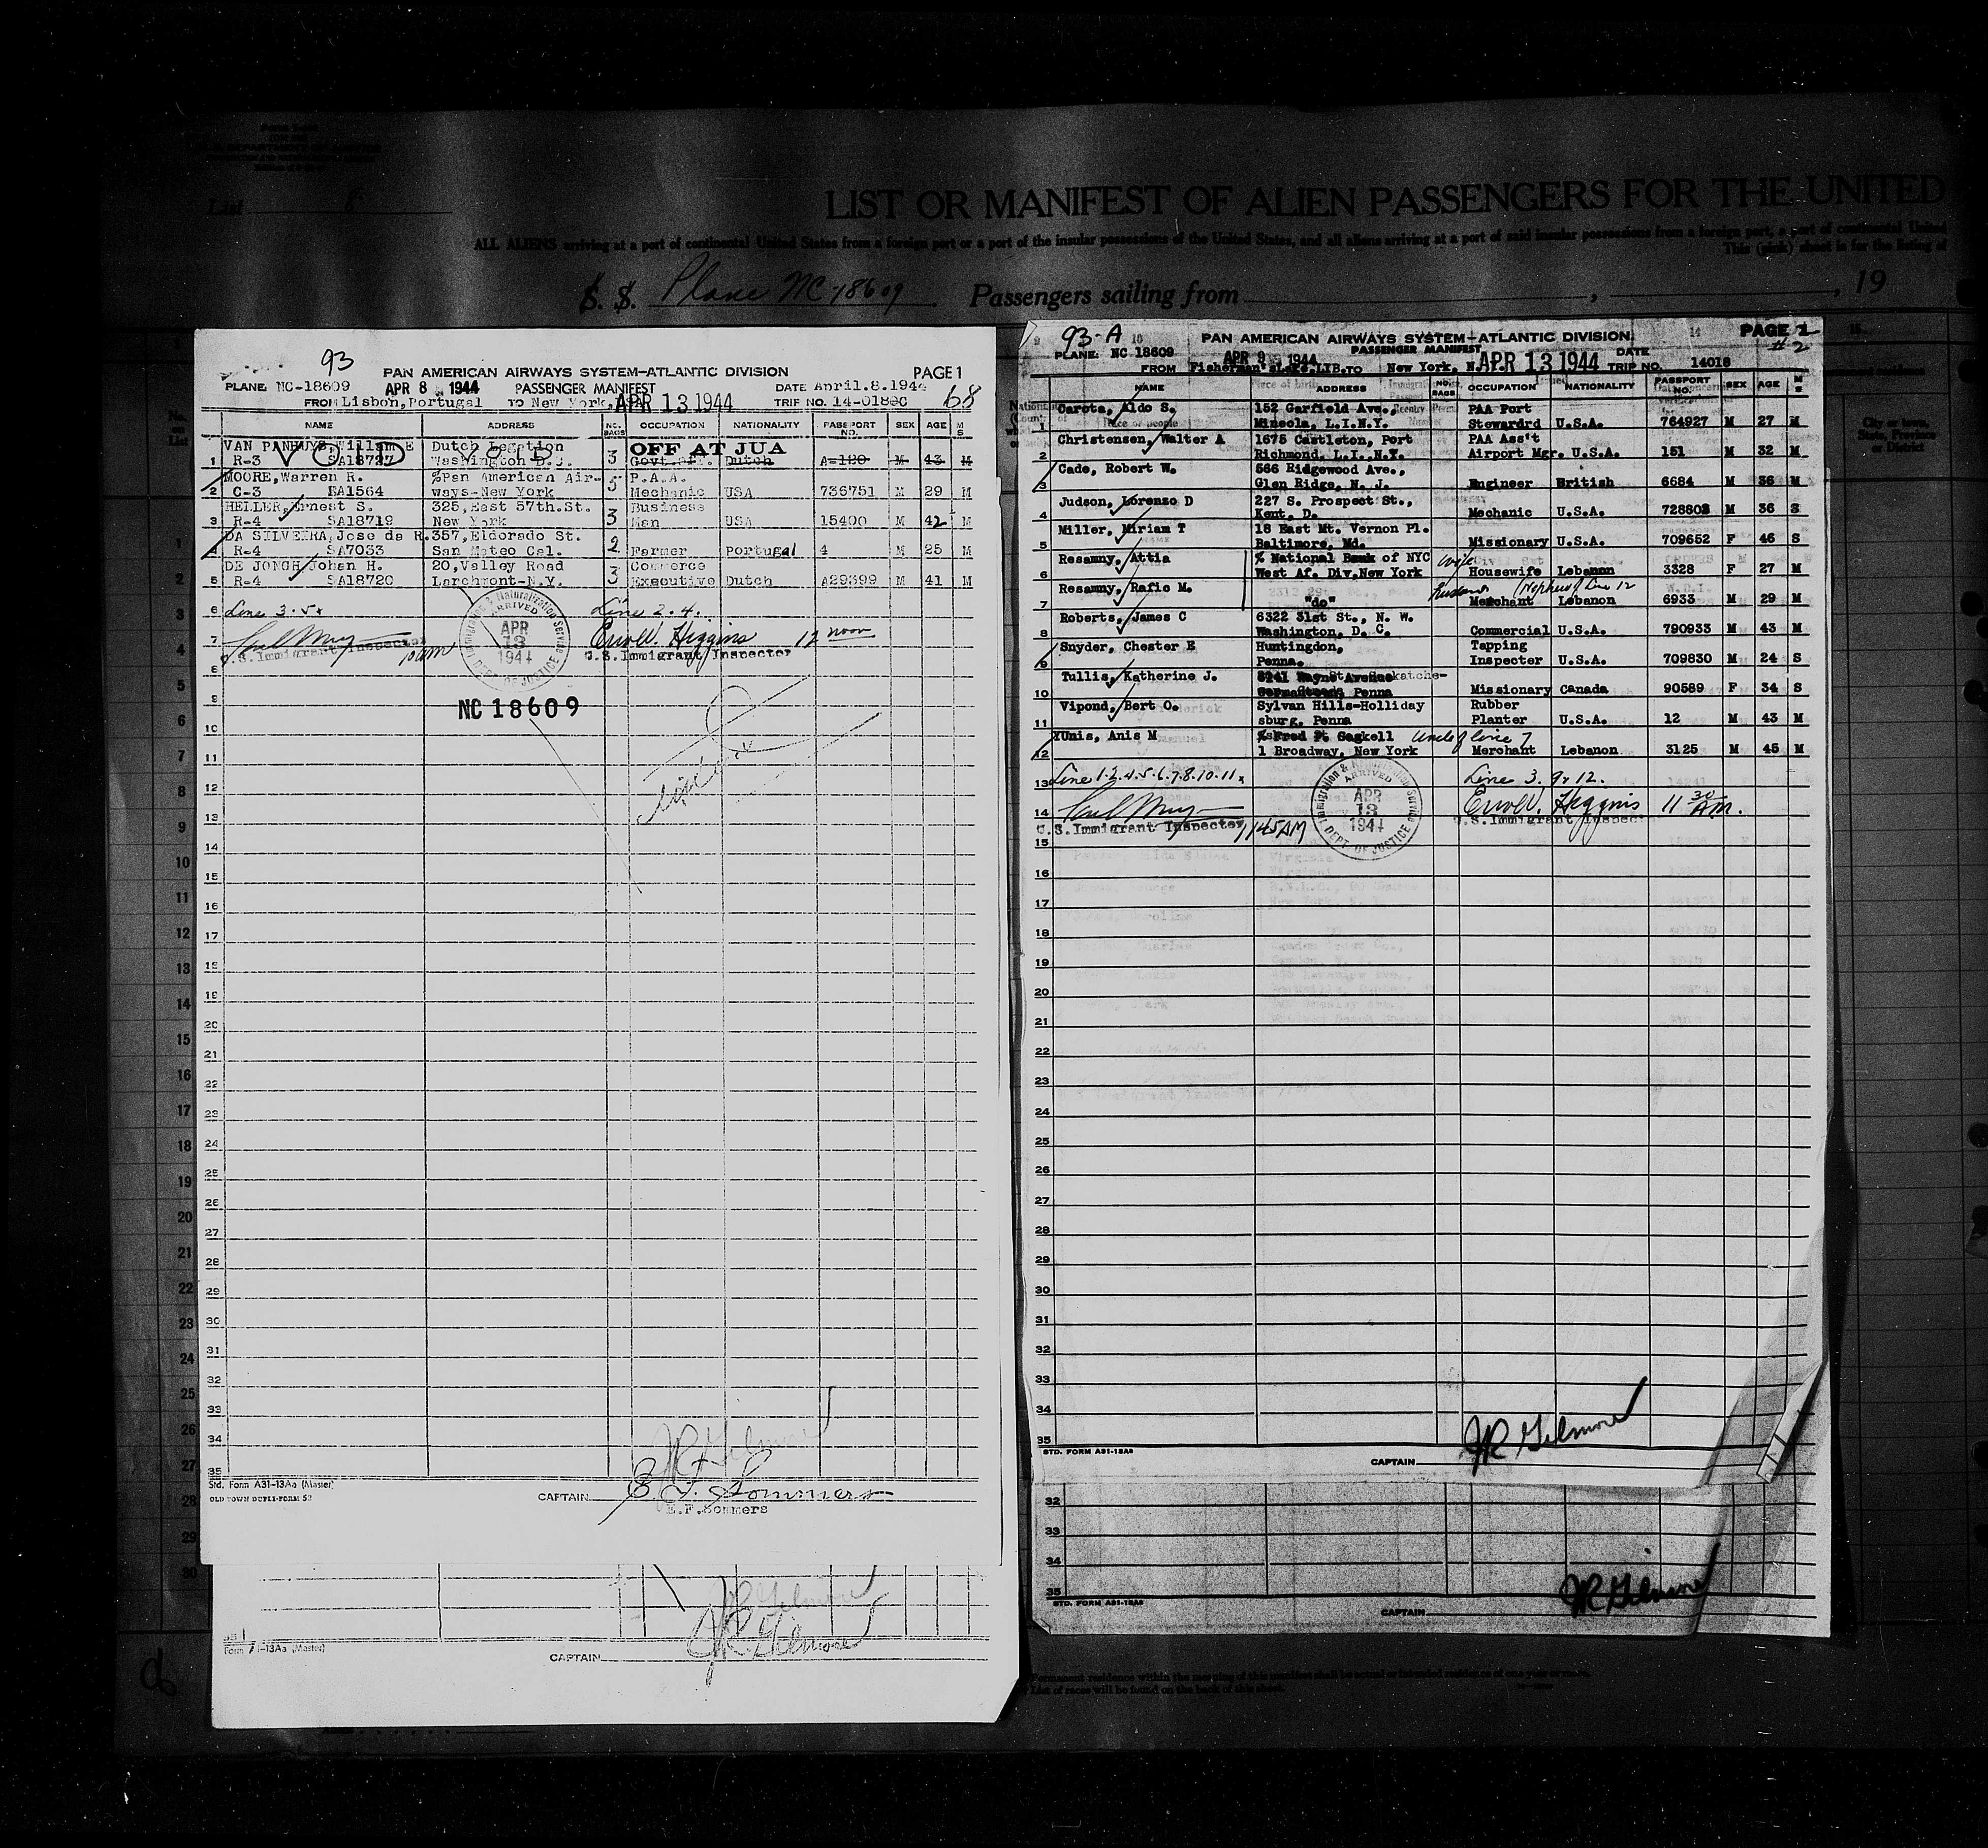 List 8
LIST OR MANIFEST OF ALIEN PASSENGERS FOR THE UNITED
ALL ALIENS arriving at a port of continental United States from a foreign port or a port of the insular possessions of the United States, and all aliens arriving at a port of said insular possessions from a foreign port, a port of continental United
This (pink) sheet is for the listing of
S. S. Plane NC-18609 Passengers sailing from , , 19
93
PAN AMERICAN AIRWAYS SYSTEM-ATLANTIC DIVISION PAGE 1
PLANE NC-18609 APR 8 1944 PASSENGER MANIFEST DATE April.8.1944
FROM Lisbon, Portugal TO New York, APR 13 1944 TRIP NO. 14-018EC 68
NAME ADDRESS NO. BAGS OCCUPATION NATIONALITY PASSPORT NO. SEX AGE M S
VAN PANHUYS, Willem E Dutch Legation OFF AT JUA
1 R-3 SA18727 Washington D.C. 3 Govt.Of. Dutch A-120 M 43 M
MOORE, Warren R. %Pan American Air- P.A.A.
2 C-3 EA1564 ways-New York 5 Mechanic USA 736751 M 29 M
HELLER, Ernest S. 325, East 57th.St. Business
3 R-4 SA18719 New York 3 Man USA 15400 M 42 M
DA SILVEIRA, Jose da R. 357, Eldorado St.
4 R-4 SA7033 San Mateo Cal. 2 Farmer Portugal 4 M 25 M
DE JONGH, Johan H. 20, Valley Road Commerce
5 R-4 SA18720 Larchmont-N.Y. 3 Executive Dutch A29399 M 41 M
6 Line 3.5x Line 2.4.
7 Erroll Higgins 12 noon
U.S. Immigrant Inspector 10 am U.S. Immigrant Inspector
Immigration & Naturalization Service ARRIVED APR 13 1944 DEPT. OF JUSTICE
8
9 NC 18609
10
11
12
13
14
15
16
17
18
19
20
21
22
23
24
25
26
27
28
29
30
31
32
33
34 JR Gilmore
35
Std. Form A31-13Aa (Master)
OLD TOWN DUPLI-FORM 53 CAPTAIN E. F. Sommers
E.F.Sommers
JR Gilmore
Form 13Aa (Master) CAPTAIN JR Gilmore
93-A PAN AMERICAN AIRWAYS SYSTEM-ATLANTIC DIVISION PAGE 1
#2
PLANE: NC 18609 APR 9 1944 PASSENGER MANIFEST APR 13 1944 DATE
FROM Fisherman's Lake, LIB. TO New York, N.Y. TRIP NO. 14018
NAME ADDRESS NO. BAGS OCCUPATION NATIONALITY PASSPORT NO. SEX AGE M S
Carota, Aldo S. 152 Garfield Ave., PAA Port
1 Mineola, L.I.N.Y. Stewardrd U.S.A. 764927 M 27 M
Christensen, Walter A 1675 Castleton, Port PAA Ass't
2 Richmond, L.I.,N.Y. Airport Mgr. U.S.A. 151 M 32 M
Cade, Robert W. 566 Ridgewood Ave.,
3 Glen Ridge, N. J. Engineer British 6684 M 36 M
Judson, Lorenzo D 227 S. Prospect St.,
4 Kent, D. Mechanic U.S.A. 728803 M 36 S
Miller, Miriam T 18 East Mt. Vernon Pl.
5 Baltimore, Md. Missionary U.S.A. 709652 F 46 S
Resamny, Attia % National Bank of NYC wife
6 West Af. Div, New York Housewife Lebanon 3328 F 27 M
Resamny, Rafic M. Husband (Nephew of Line 12
7 "do" Merchant Lebanon 6933 M 29 M
Roberts, James C 6322 31st St., N. W.
8 Washington, D. C. Commercial U.S.A. 790933 M 43 M
Snyder, Chester E Huntingdon, Tapping
9 Penna. Inspector U.S.A. 709830 M 24 S
Tullis, Katherine J.
10 Penna Missionary Canada 90589 F 34 S
Vipond, Bert O. Sylvan Hills-Holliday Rubber
11 sburg, Penna Planter U.S.A. 12 M 43 M
YUnis, Anis M % Fred P. Gaskell Uncle of Line 7
12 1 Broadway, New York Merchant Lebanon 3125 M 45 M
13 Line 1.2.4.5.6.7.8.10.11x Line 3. 9x 12.
14 Erroll Higgins 11 30 AM.
U.S. Immigrant Inspector 11 45 AM U.S. Immigrant Inspect
Immigration & Naturalization Service ARRIVED APR 13 1944 DEPT. OF JUSTICE
15
16
17
18
19
20
21
22
23
24
25
26
27
28
29
30
31
32
33
34
35 JR Gilmore
STD. FORM A31-13A8
CAPTAIN
32
33
34
35 JR Gilmore
STD. FORM A31-13A8
CAPTAIN
Permanent residence within the meaning of this manifest shall be actual or intended residence of one year or more.
List of races will be found on the back of this sheet.